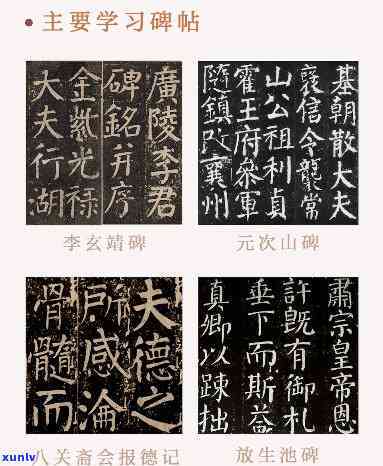 主要学习碑帖
廣陵李君
碑銘并序
金紫光禄
大夫行湖
基朝散大夫
襃信令襲常
山公祖利貞
霍王府叅軍
隨鎮改襄州
李玄靖碑
元次山碑
夫德之
所感淪
骨髓而
肅宗皇帝恩
許既有御札
垂下而斯益
真卿以踈拙
八关斋会报德记
放生池碑
xunlv